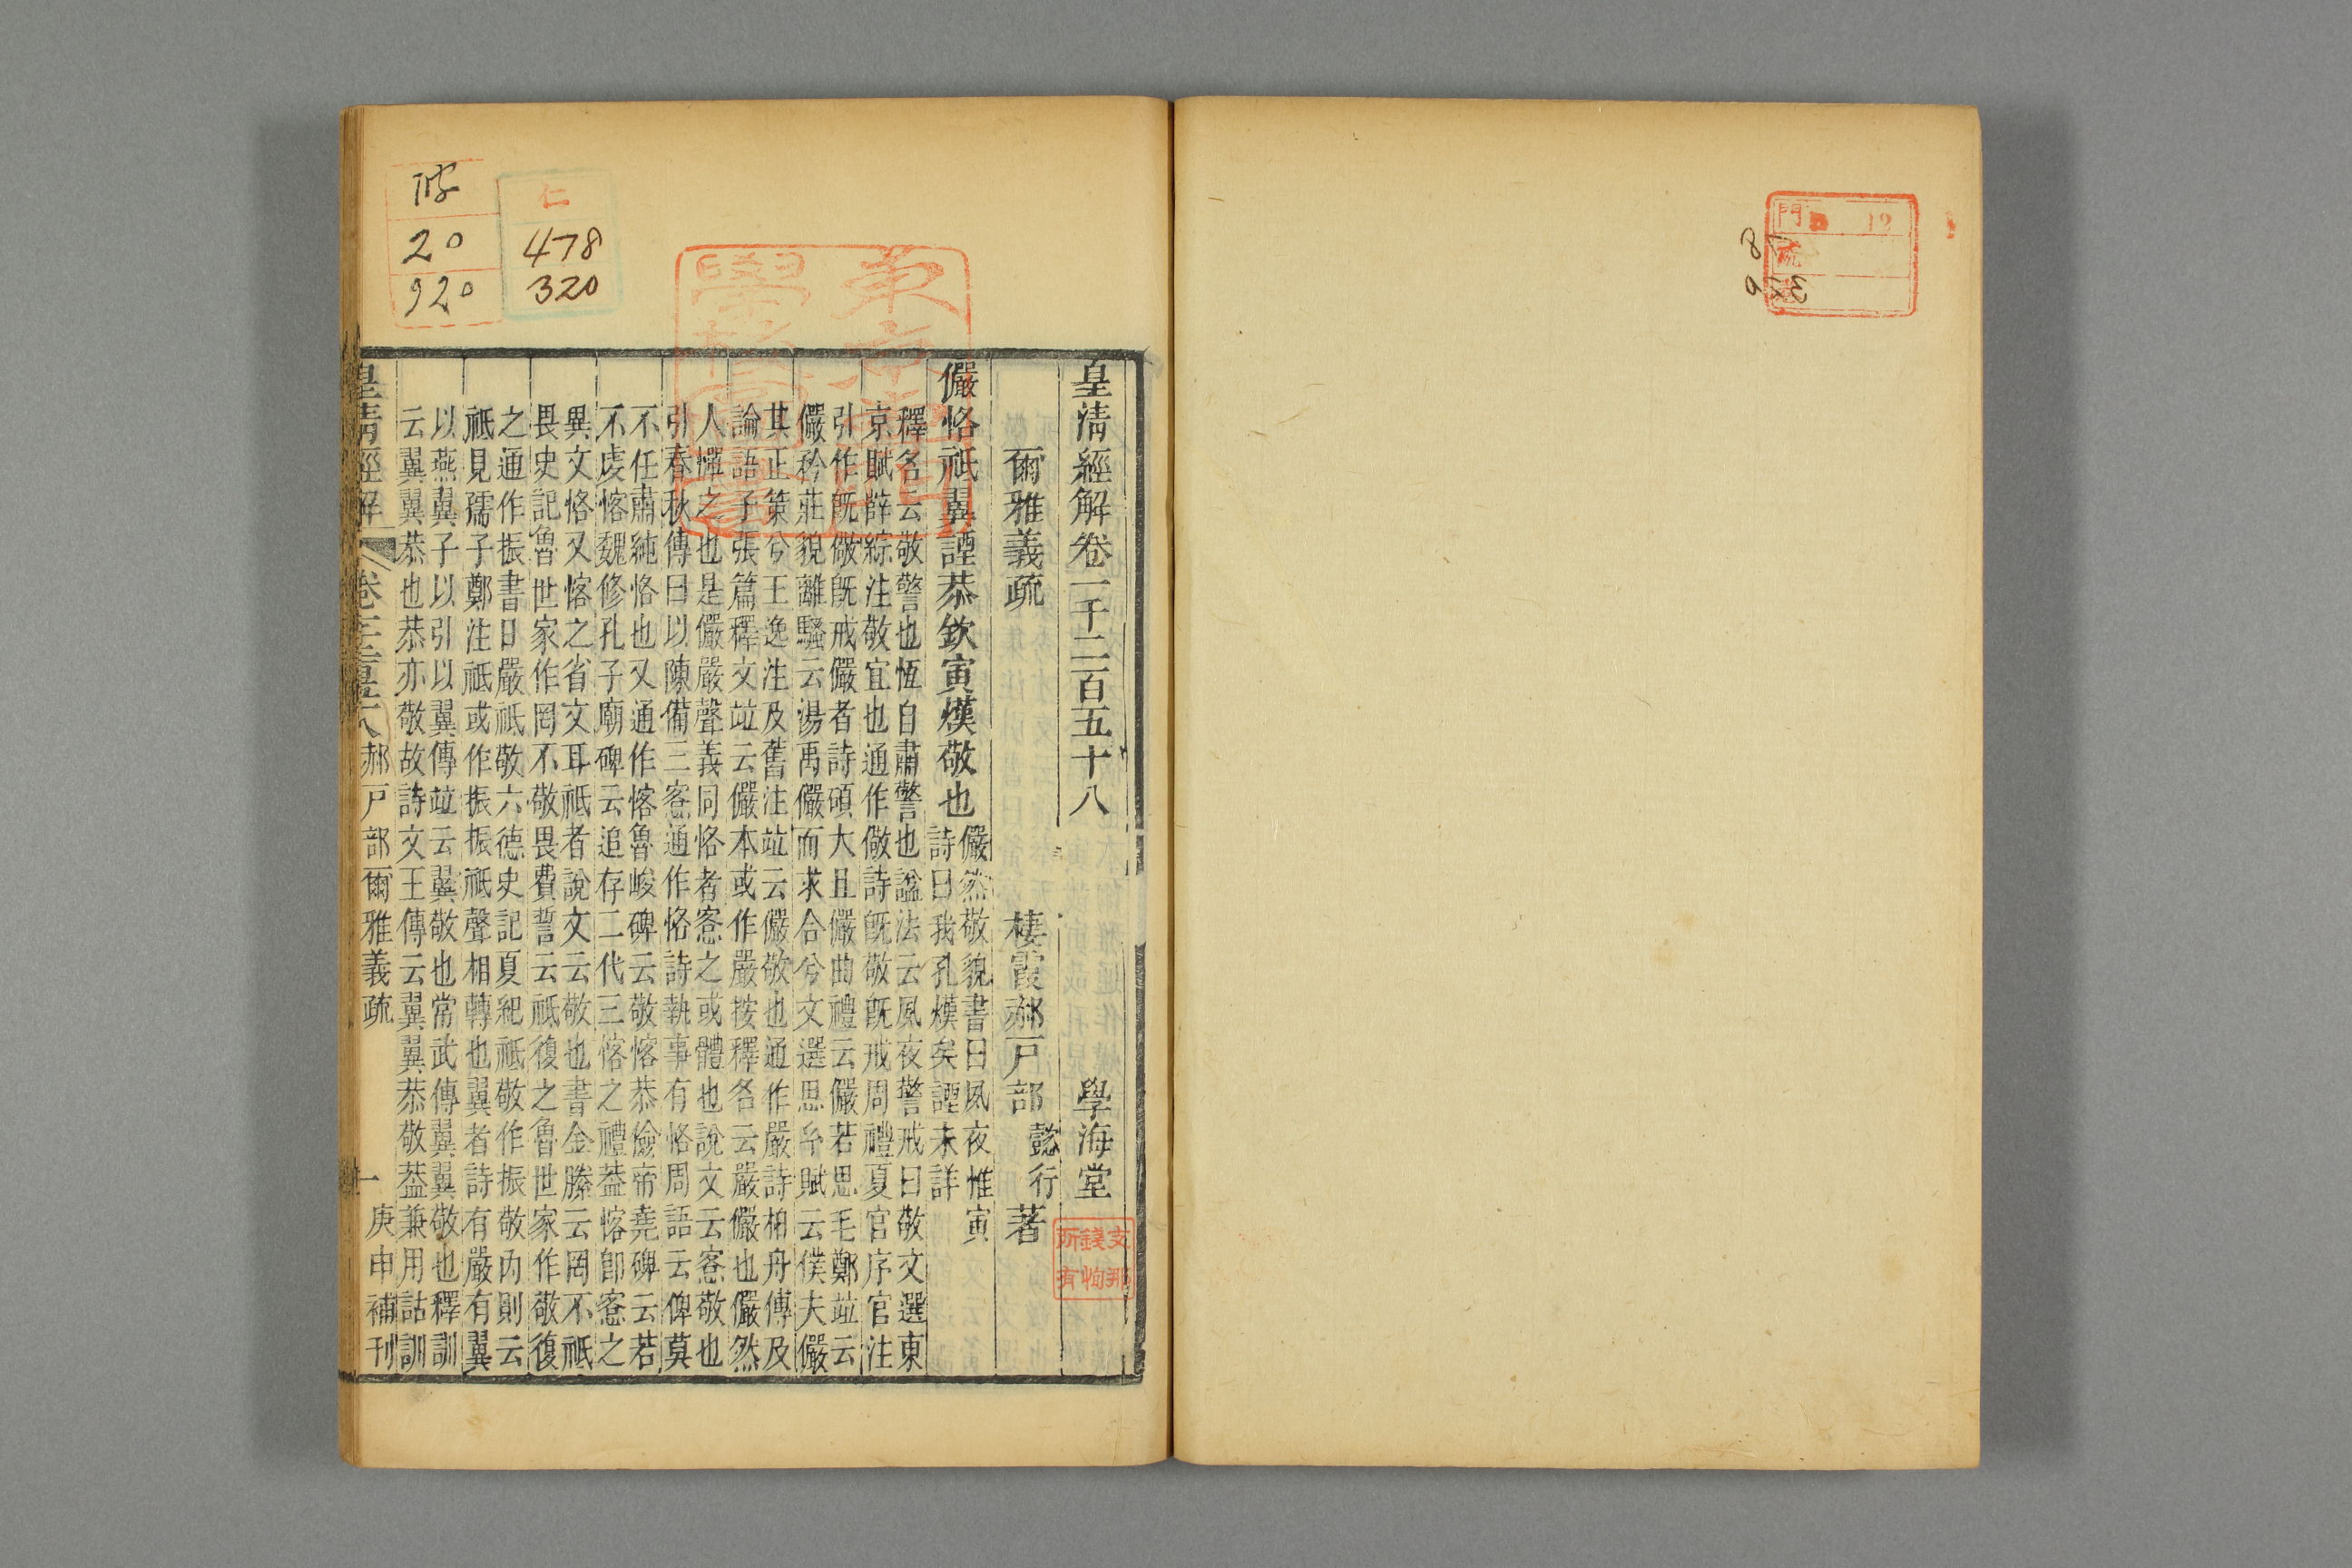 皇清經解卷一千二百五十八
學海堂
爾雅義疏
棲霞郝戸部懿行著
儼恪祗翼諲恭欽寅熯敬也
儼然敬貌書曰夙夜惟寅
詩曰我孔熯矣諲未詳
釋名云敬警也恆自肅警也諡法云夙夜警戒曰敬文選東
京賦薛綜注敬宜也通作儆詩旣敬旣戒周禮夏官序官注
引作旣儆旣戒儼者詩碩大且儼曲禮云儼若思毛鄭竝云
儼矜莊貌離騷云湯禹儼而求合兮文選思㐱賦云僕夫儼
其正策兮王逸注及舊注竝云儼敬也通作嚴詩柏舟傳及
論語子張篇釋文竝云儼本或作嚴按釋名云嚴儼也儼然
人憚之也是儼嚴聲義同恪者愙之或體也說文云愙敬也
引春秋傳曰以陳備三愙通作恪詩執事有恪周語云俾莫
不任肅純恪也又通作㤩魯峻碑云敬㤩恭儉帝堯碑云若
不虔㤩魏修孔子廟碑云追存二代三㤩之禮葢㤩卽愙之
異文恪又㤩之省文耳祗者說文云敬也書金縢云罔不祗
畏史記魯世家作罔不敬畏費誓云祗復之魯世家作敬復
之通作振書日嚴祗敬六德史記夏紀祗敬作振敬內則云
祗見孺子鄭注祗或作振振祗聲相轉也翼者詩有嚴有翼
以燕翼子以引以翼傳竝云翼敬也常武傳翼翼敬也釋訓
云翼翼恭也恭亦敬故詩文王傳云翼翼恭敬葢兼用詁訓
皇清經解
郝戸部爾雅義疏
一
庚申補刊
仁
20
478
920
320
門
12